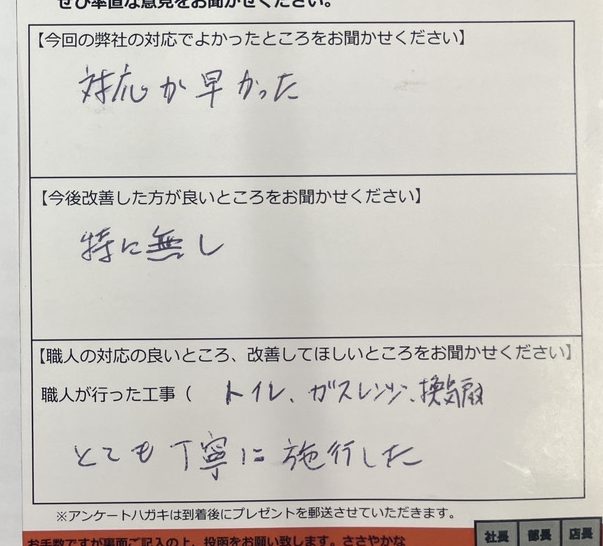 ぜひ率直な意見をお聞かせください。
【今回の弊社の対応でよかったところをお聞かせください】
対応が早かった
【今後改善した方が良いところをお聞かせください】
特に無し
【職人の対応の良いところ、改善してほしいところをお聞かせください】
職人が行った工事（ トイレ、ガスレンジ、換気扇
とても丁寧に施行した
※アンケートハガキは到着後にプレゼントを郵送させていただきます。
お手数ですが裏面ご記入の上、投函をお願い致します。ささやかな
社長 部長 店長